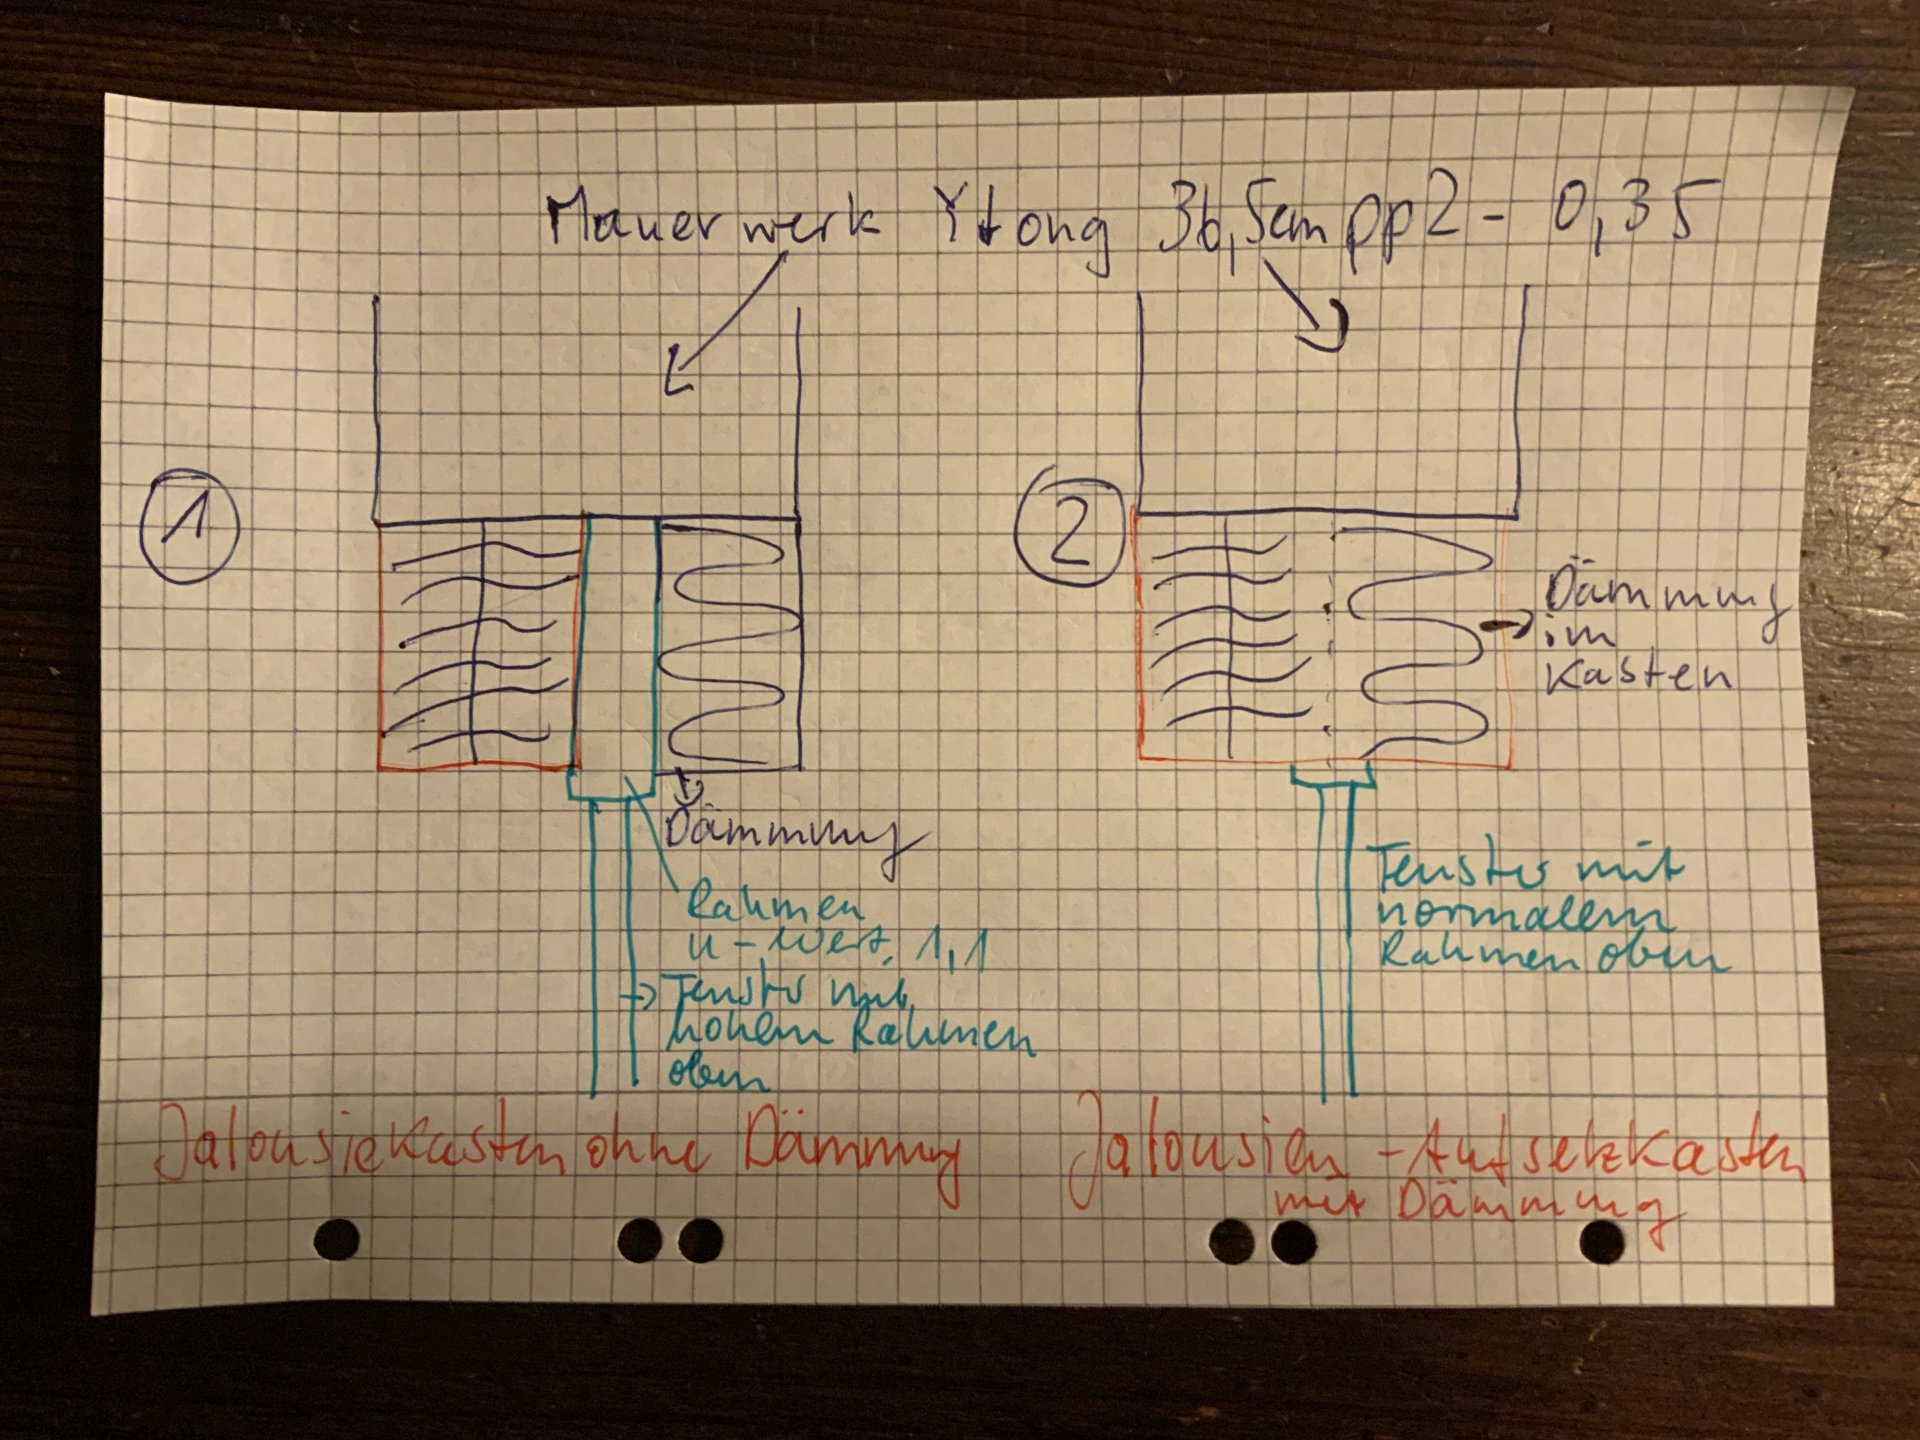 Mauerwerk Ytong 36,5cm pp2 - 0,35
1
2
Dämmung
im
Kasten
Dämmung
Rahmen
U-Wert 1,1
Fenster mit
hohem Rahmen
oben
Fenster mit
normalem
Rahmen oben
Jalousiekasten ohne Dämmung
Jalousien - Aufsetzkasten
mit Dämmung